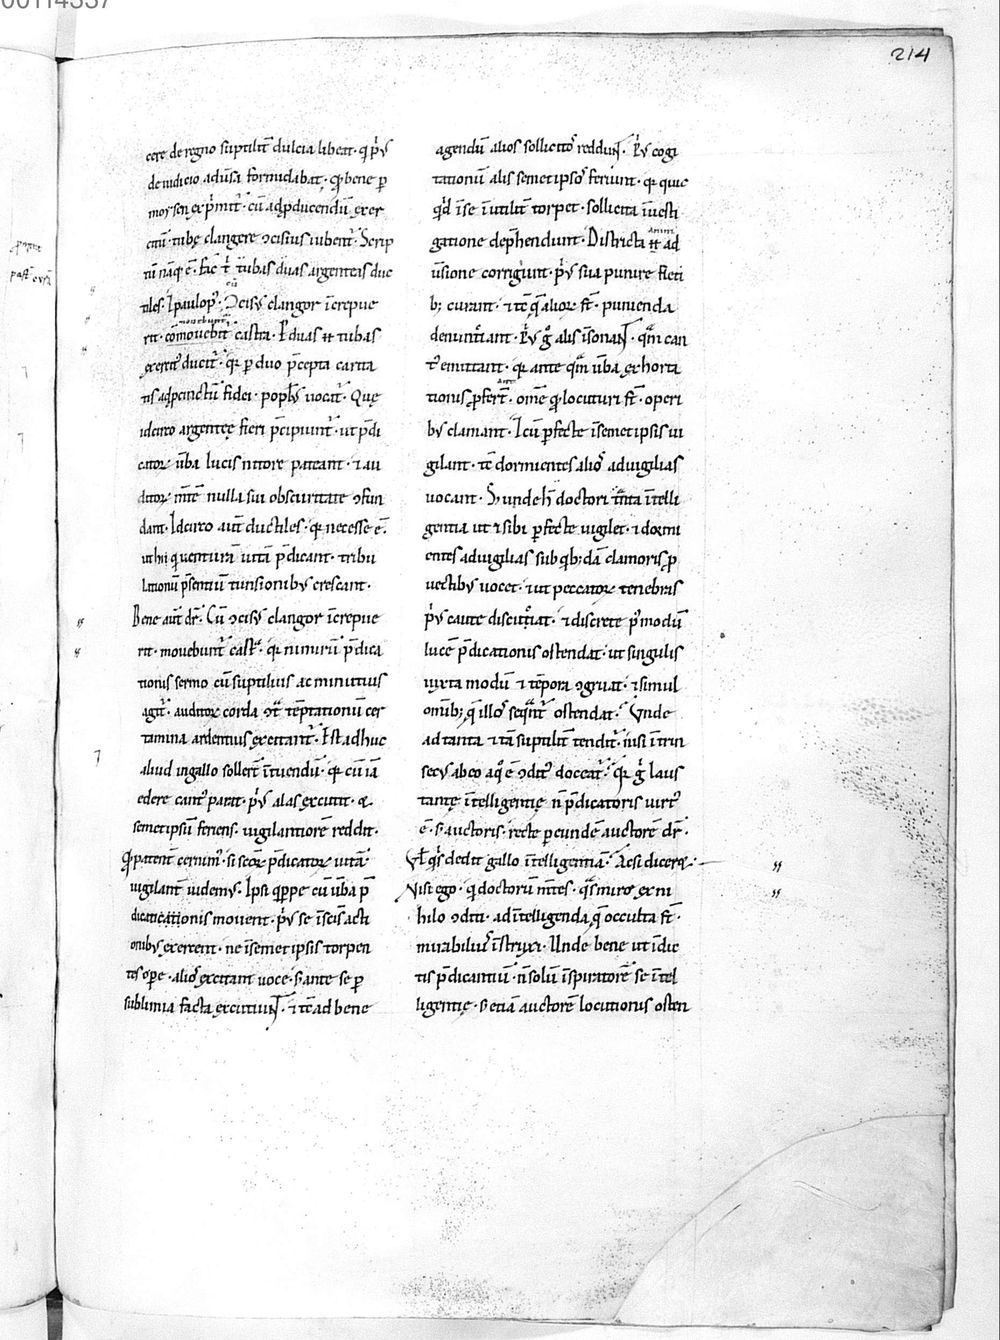 00114337
214
cere de regno suptilit̄ dulcia libeat· q̇ ṗꝰ
de iudicio adūsa formidabat· Qḋ bene ꝑ
moysen exp̄mit̄· cū adp̄ducendū exer
citū· tubę clangere ↄcisius iubent̄· Scrip
tū nāq; ē· fac t̄ tubas duas argenteas duc
tiles· I paulop᷒· Cū ↄcisꝰ clangor īcrepue
rit· cōmovebit̄ castra· P duas ħ tubas
exercit᷒ ducit̄· qꝛ ꝑ duo p̄cepta carita
tis adp̄cinctū fidei· popl̄s vocat̄· Quę
idcirco argentęę fieri p̄cipiunt̄· ut p̄di
catoꝝ ūba lucis nitore pateant· ⁊ au
ditoꝝ m̄tē nulla sui obscuritate ↄfun
dant· Idcirco aūt ductiles· qꝛ necesse ē·
ut hi q̇ venturā uitā p̄dicant· tribu
lationū p̄sentiū tunsionibꝰ crescant·
Bene aūt dr̄· Cū ↄcisꝰ clangor īcrepue
rit· movebunt̄ cast̄· qꝛ nimirū p̄dica
tionis sermo cū suptilius ac minutius
agit̄· auditoꝝ corda ↄt̄ tēptationū cer
tamina ardentius excitant̄· Est adhuc
aliud in gallo sollert̄ ītuendū· qꝛ cū iā
edere cant᷒ parat· ṗꝰ alas excutit· &
semetipsū feriens· vigilantiorē reddit·
Qḋ patent̄ cernim᷒· si scōꝝ p̄dicatoꝝ uitā
vigilant̄ videmꝰ· Ipsi q̇ppe cū ūba p̄
dicationis movent· ṗꝰ se īscīs acti
onibꝰ exercent· ne īsemetipsis torpen
tes ope· alios excitant voce· s; ante se ꝑ
sublimia facta excutiuɴᴛ· ⁊ tē ad bene
agendū alios sollicitos reddunt· Ṗꝰ cogi
tationū alis semetipsos feriunt· qꝛ quic
q̇d īse īutilit̄ torpet· sollicita īvesti
gatione dep̄hendunt· Districta ħ ad
ūsione corrigunt· ṗꝰ sua punire fleti
b; curant· ⁊ tē q̄ alioꝝ st̄· punienda
denuntiant· Ṗꝰ g̊ alis īsonaɴᴛ· q̄m can
t᷒ emittant· qꝛ ante q̄m ūba exhorta
tionis ꝓfert̄· om̄e qḋ locuturi st̄· operi
bꝰ clamant· I cū ꝑfecte īsemetipsis vi
gilant· tē dormientes alios ad vigilias
vocant· S; unde h̄ doctori tāta ītelli
gentia ut ⁊ sibi ꝑfecte vigilet· ⁊ dormi
entes ad vigilias sub q̇b;dā clamoris ꝓ
vectibꝰ vocet· ⁊ ut peccatoꝝ tenebras
ṗꝰ caute discutiat· ⁊ discrete p᷒ modū
lucē p̄dicationis ostendat· ut singulis
iuxta modū ⁊ tēpora ↄgruat· ⁊ simul
omīb; q̄ illos seqūt̄ ostendat· Unde
ad tanta ⁊ tā suptilit̄ tendit̄· nisi ītrin
secꝰ abeo aq̊ ē ↄdit᷒ doceat̄· Qꝛ g̊ laus
tantę ītelligentię n̄ p̄dicatoris virt᷒
ē· s; auctoris· recte ꝑ eundē auctorē dr̄·
Vl̄ q̇s dedit gallo ītelligentiā· Acsi diceret·
Nisi ego· q̇ doctorū m̄tes· q̄s mire ex ni
hilo ↄdidi· ad intelligenda, q̄ occulta st̄·
mirabili᷒ īstruxi· Unde bene ut īdic
tis p̄dicantiū· n̄ solū īspiratorē se ītel
ligentię· s; etiā auctorē locutionis osten